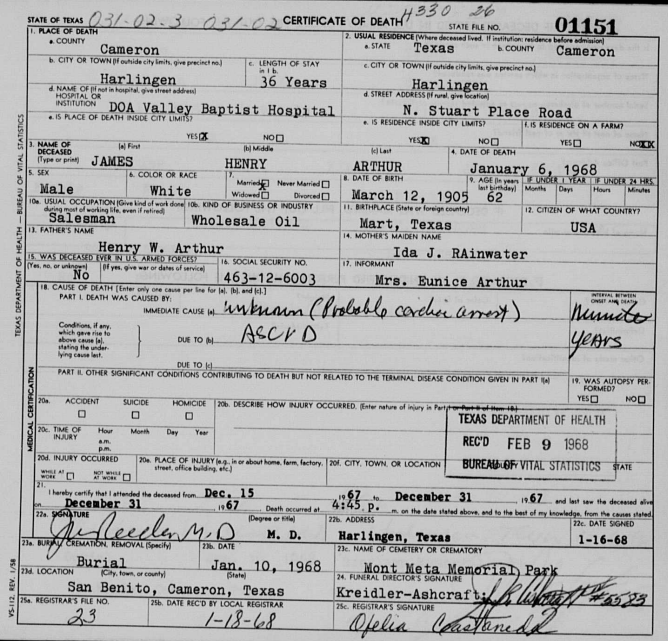 STATE OF TEXAS 031-02-3 031-02 CERTIFICATE OF DEATH 4330 26 STATE FILE NO. 01151
1. PLACE OF DEATH
a. COUNTY
Cameron
2. USUAL RESIDENCE (Where deceased lived. If institution: residence before admission)
a. STATE Texas b. COUNTY Cameron
b. CITY OR TOWN (If outside city limits, give precinct no.)
Harlingen
c. LENGTH OF STAY in 1 b.
36 Years
c. CITY OR TOWN (If outside city limits, give precinct no.)
Harlingen
d. NAME OF (If not in hospital, give street address)
HOSPITAL OR
INSTITUTION DOA Valley Baptist Hospital
d. STREET ADDRESS (If rural, give location)
N. Stuart Place Road
e. IS PLACE OF DEATH INSIDE CITY LIMITS?
YES X NO
e. IS RESIDENCE INSIDE CITY LIMITS?
YES X NO
f. IS RESIDENCE ON A FARM?
YES NO XX
3. NAME OF DECEASED
(Type or print)
(a) First
JAMES
(b) Middle
HENRY
(c) Last
ARTHUR
4. DATE OF DEATH
January 6, 1968
5. SEX
Male
6. COLOR OR RACE
White
7.
Married X Never Married
Widowed Divorced
8. DATE OF BIRTH
March 12, 1905
9. AGE (In years last birthday)
62
IF UNDER 1 YEAR
Months Days
IF UNDER 24 HRS.
Hours Minutes
10a. USUAL OCCUPATION (Give kind of work done during most of working life, even if retired)
Salesman
10b. KIND OF BUSINESS OR INDUSTRY
Wholesale Oil
11. BIRTHPLACE (State or foreign country)
Mart, Texas
12. CITIZEN OF WHAT COUNTRY?
USA
13. FATHER'S NAME
Henry W. Arthur
14. MOTHER'S MAIDEN NAME
Ida J. RAinwater
15. WAS DECEASED EVER IN U.S. ARMED FORCES?
(Yes, no, or unknown) (If yes, give war or dates of service)
No
16. SOCIAL SECURITY NO.
463-12-6003
17. INFORMANT
Mrs. Eunice Arthur
18. CAUSE OF DEATH [Enter only one cause per line for (a), (b), and (c).]
PART I. DEATH WAS CAUSED BY:
IMMEDIATE CAUSE (a) unknown (Probable cardiac arrest)
INTERVAL BETWEEN ONSET AND DEATH
Minutes
Conditions, if any, which gave rise to above cause (a), stating the underlying cause last.
DUE TO (b) ASCVD
years
DUE TO (c)
PART II. OTHER SIGNIFICANT CONDITIONS CONTRIBUTING TO DEATH BUT NOT RELATED TO THE TERMINAL DISEASE CONDITION GIVEN IN PART I(a)
19. WAS AUTOPSY PERFORMED?
YES NO
20a. ACCIDENT SUICIDE HOMICIDE
20b. DESCRIBE HOW INJURY OCCURRED. (Enter nature of injury in Part I or Part II of item 18.)
20c. TIME OF INJURY
Hour Month Day Year
a.m.
p.m.
TEXAS DEPARTMENT OF HEALTH
REC'D FEB 9 1968
BUREAU OF VITAL STATISTICS
20d. INJURY OCCURRED
WHILE AT WORK NOT WHILE AT WORK
20e. PLACE OF INJURY (e.g., in or about home, farm, factory, street, office building, etc.)
20f. CITY, TOWN, OR LOCATION
STATE
21.
I hereby certify that I attended the deceased from Dec. 15 1967 to December 31 1967 and last saw the deceased alive
on December 31 1967 Death occurred at 4:45 p. m. on the date stated above, and to the best of my knowledge, from the causes stated.
22a. SIGNATURE
M.D
(Degree or title)
M. D.
22b. ADDRESS
Harlingen, Texas
22c. DATE SIGNED
1-16-68
23a. BURIAL, CREMATION, REMOVAL (Specify)
Burial
23b. DATE
Jan. 10, 1968
23c. NAME OF CEMETERY OR CREMATORY
Mont Meta Memorial Park
23d. LOCATION (City, town, or county) (State)
San Benito, Cameron, Texas
24. FUNERAL DIRECTOR'S SIGNATURE
Kreidler-Ashcraft #5583
25a. REGISTRAR'S FILE NO.
23
25b. DATE REC'D BY LOCAL REGISTRAR
1-18-68
25c. REGISTRAR'S SIGNATURE
Ofelia Castaneda
TEXAS DEPARTMENT OF HEALTH — BUREAU OF VITAL STATISTICS
MEDICAL CERTIFICATION
VS-112, REV. 1/58